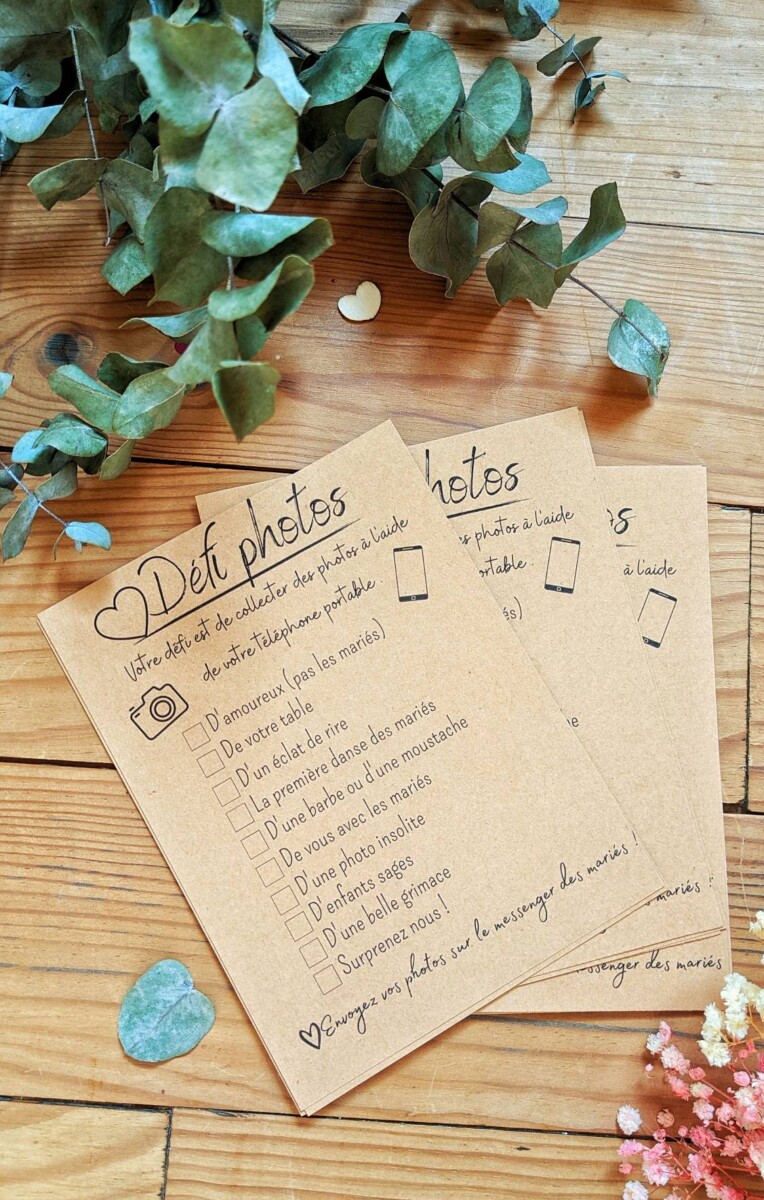 Défi photos
Votre défi est de collecter des photos à l'aide
de votre téléphone portable.
D'amoureux (pas les mariés)
De votre table
D'un éclat de rire
La première danse des mariés
D'une barbe ou d'une moustache
De vous avec les mariés
D'une photo insolite
D'enfants sages
D'une belle grimace
Surprenez nous !
Envoyez vos photos sur le messenger des mariés !
hotos
es photos à l'aide
ortable.
és)
e
mariés !
os
à l'aide
ssenger des mariés